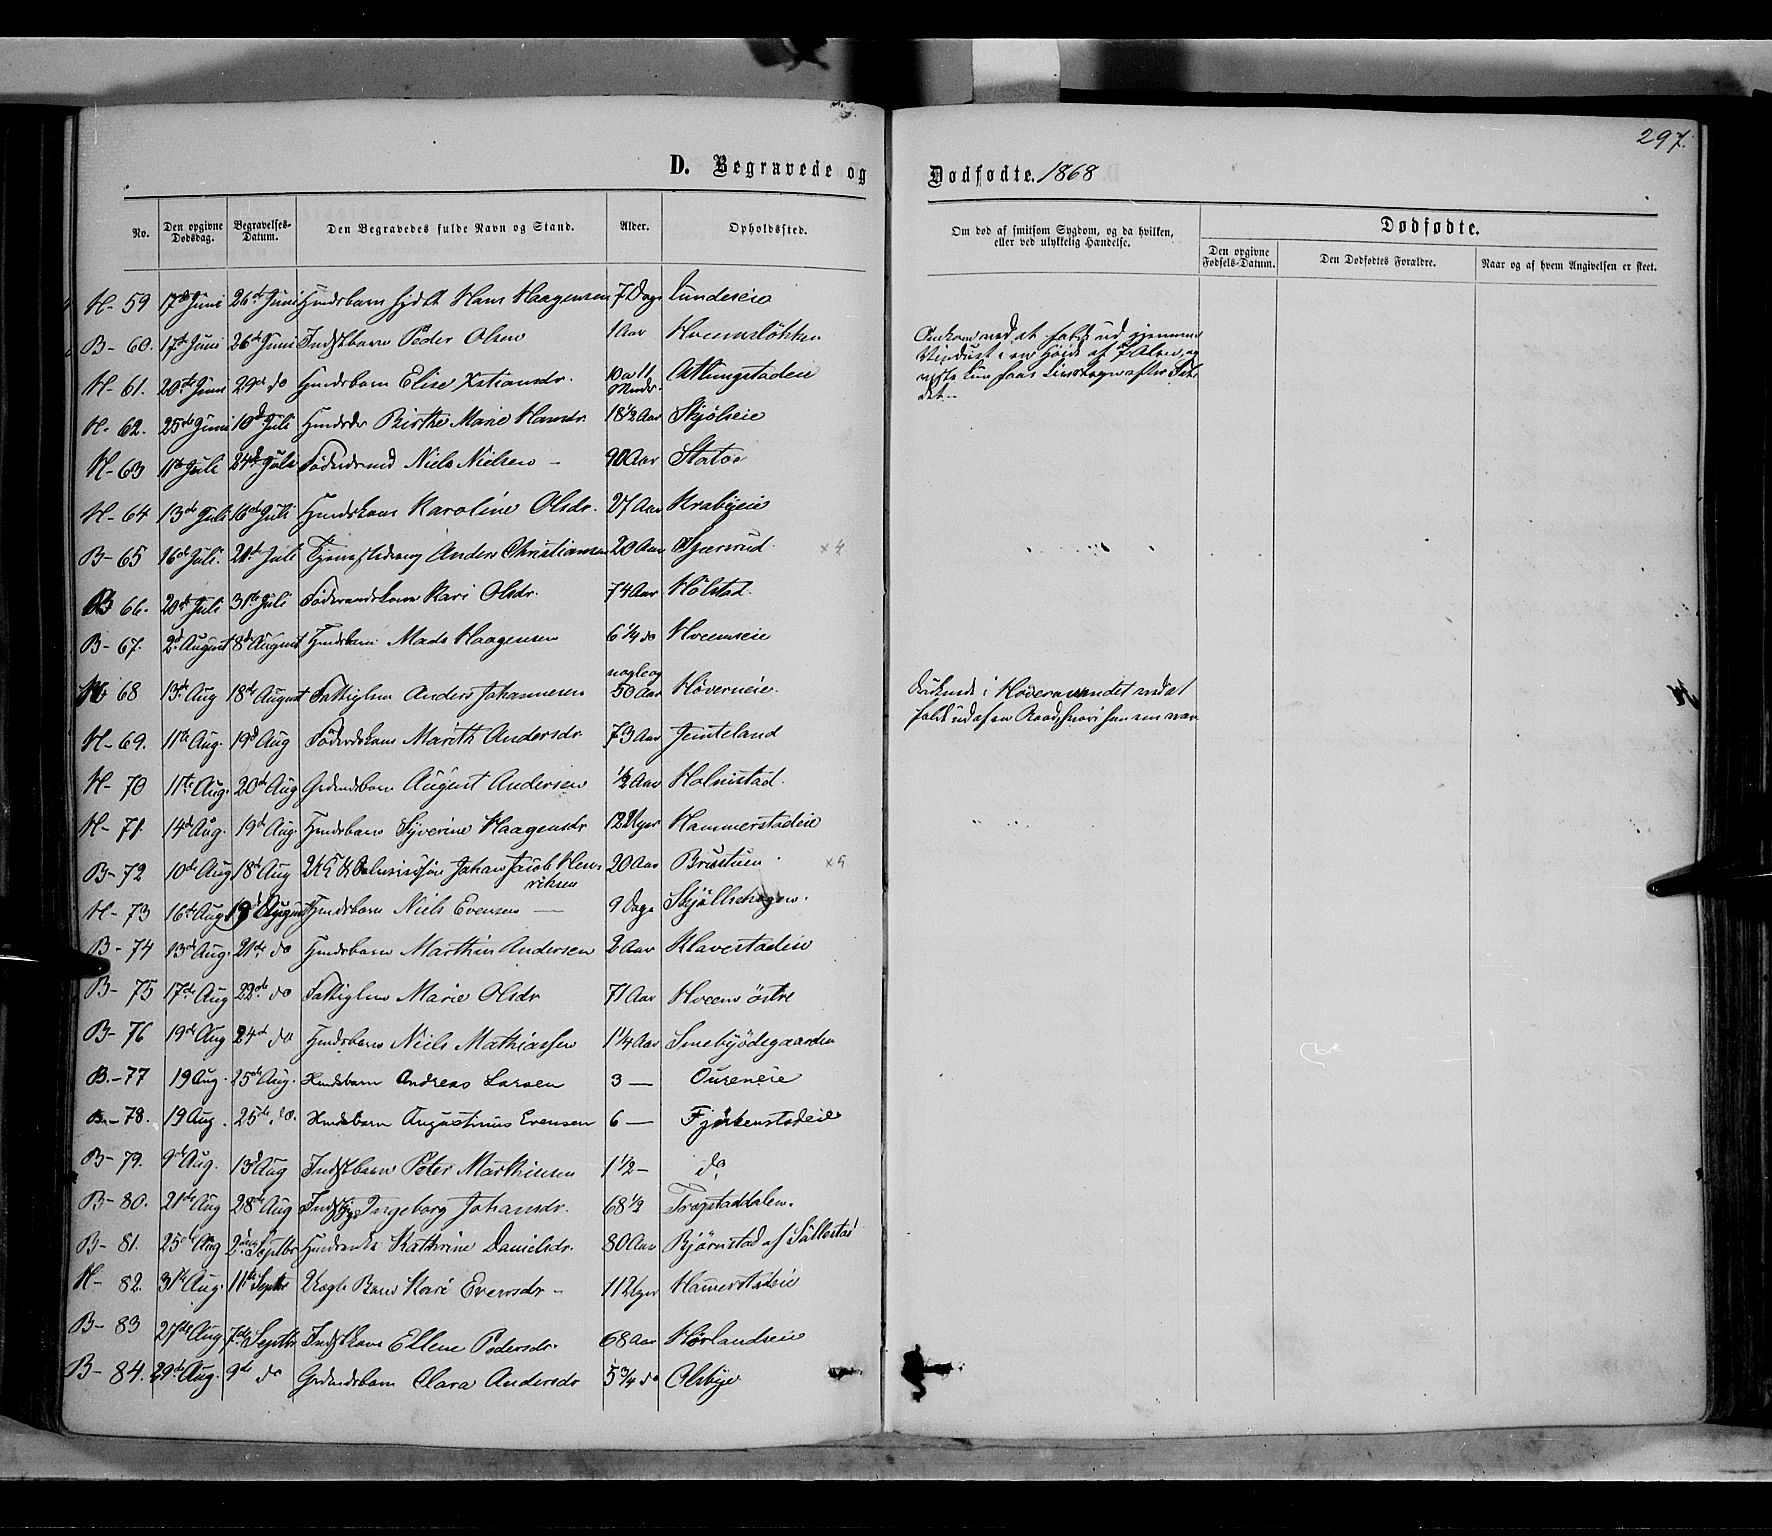 297.
D. Begravede og Dødfødte. 1868
No. Den opgivne Dødsdag. Begravelses-Datum. Den Begravedes fulde Navn og Stand. Alder. Opholdssted. Om død af smitsom Sygdom, og da hvilken, eller ved ulykkelig Hændelse. Dødfødte.
Den opgivne Fødsels-Datum. Den Dødfødtes Forældre. Naar og af hvem Angivelsen er skeet.
H- 59 17de Juni 26de Juni Hmdsbarn Hans Haagensen 7 Dage Lundeseie
B- 60. 17de Juni 26de Juni Indstbarn Peder Olsen 1 Aar Hveemsløkken Omkom ved at falde ud gjennem
Vinduet i en Høide af 7 Alen, og
H- 61. 20de Juni 29de do Hmdsbarn Elise Xstiansdr. 10 a 11 Mndr.
H- 62. 25de Juni 10de Juli Hmdsdr Birthe Marie Hansdr. 18 1/2 Aar Skjølseie
H- 63 11te Juli 24de Juli Føderdmd Niels Nielsen – 90 Aar Statoe
H- 64 13de Juli 16de Juli Hmdskone Karoline Olsdr. 27 Aar Krabyeie
B- 65 16de Juli. 21de Juli Anders Christiansen 20 Aar Gjersrud. x 4
B 66. 20de Juli 31te Juli Føderaadskone Kari Olsdr. 74 Aar Hølstad.
B- 67. 2d August 8de August Hmdsbarn Mads Haagensen 6 1/4 do Hveemseie
H- 68 13de Aug 18de August Fattiglem Anders Johannesen nogle og 50 Aar Høverneie. Druknede i Høvernvandet ved at
falde ud af en Baad, hvori han var
H- 69. 11te Aug. 19de Aug Føderdskone Marith Andersdr 73 Aar Jemteland
H- 70 11te Aug. 20de Aug Grdmdsbarn August Andersen 1/2 Aar Holmstad.
H- 71. 14de Aug. 19de Aug. Hmdsbarn Syverine Haagensdr 12 Uger Hammerstadeie
B- 72 10de Aug 18de Aug Johan Jacob Hen-
riksen 20 Aar Brustuen. x 5
H- 73 16de Aug 19de August Hmdsbarn Niels Evensen — 9 Dage Skjøllshagen.
B- 74 13de Aug. 21de do Hmdsbarn Marthin Andersen 2 Aar Klavestadeie
B- 75 17de Aug 22de do Fattiglem Marie Olsdr 71 Aar Hveem østre
B- 76 19de Aug 24de do Hmdsbarn Niels Mathiassen 1 1/4 Aar Smebyødegaarden
B.- 77 19 Aug. 25de Aug. Hmdsbarn Andreas Larsen 3 — Oureneie
B.- 78. 19 Aug. 25de do. Hmdsbarn Augustinus Evensen 6 — Fjørkenstadeie
B- 79. 9de Aug. 13de Aug Indstbarn Peter Marthinsen 1 1/2 – do
B- 80. 21de Aug 28de Aug Indstpige Ingeborg Johansdr. 68 1/2 Trogstaddalen.
B- 81. 25de Aug 2den Septbr Hmdsenke Kathrine Danielsdr. 80 Aar Bjørnstad af Sillestad
H- 82. 31te Aug. 11te Septbr Uægte Barn Kari Evensdr – 11 Uger Hamerstadeie
B- 83 27de Aug 7de Septbr Indstkone Ellene Pedersdr. 68 Aar Hørlandseie
B- 84. 29de Aug. 9de do Grdmdsbarn Clara Andersdr 5 3/4 do Alsbye